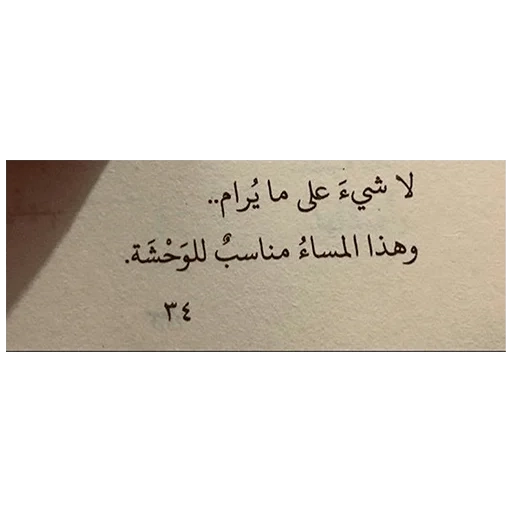 لا شيءَ على ما يُرام..
وهذا المساءُ مناسبٌ للوَحْشَة.
٣٤